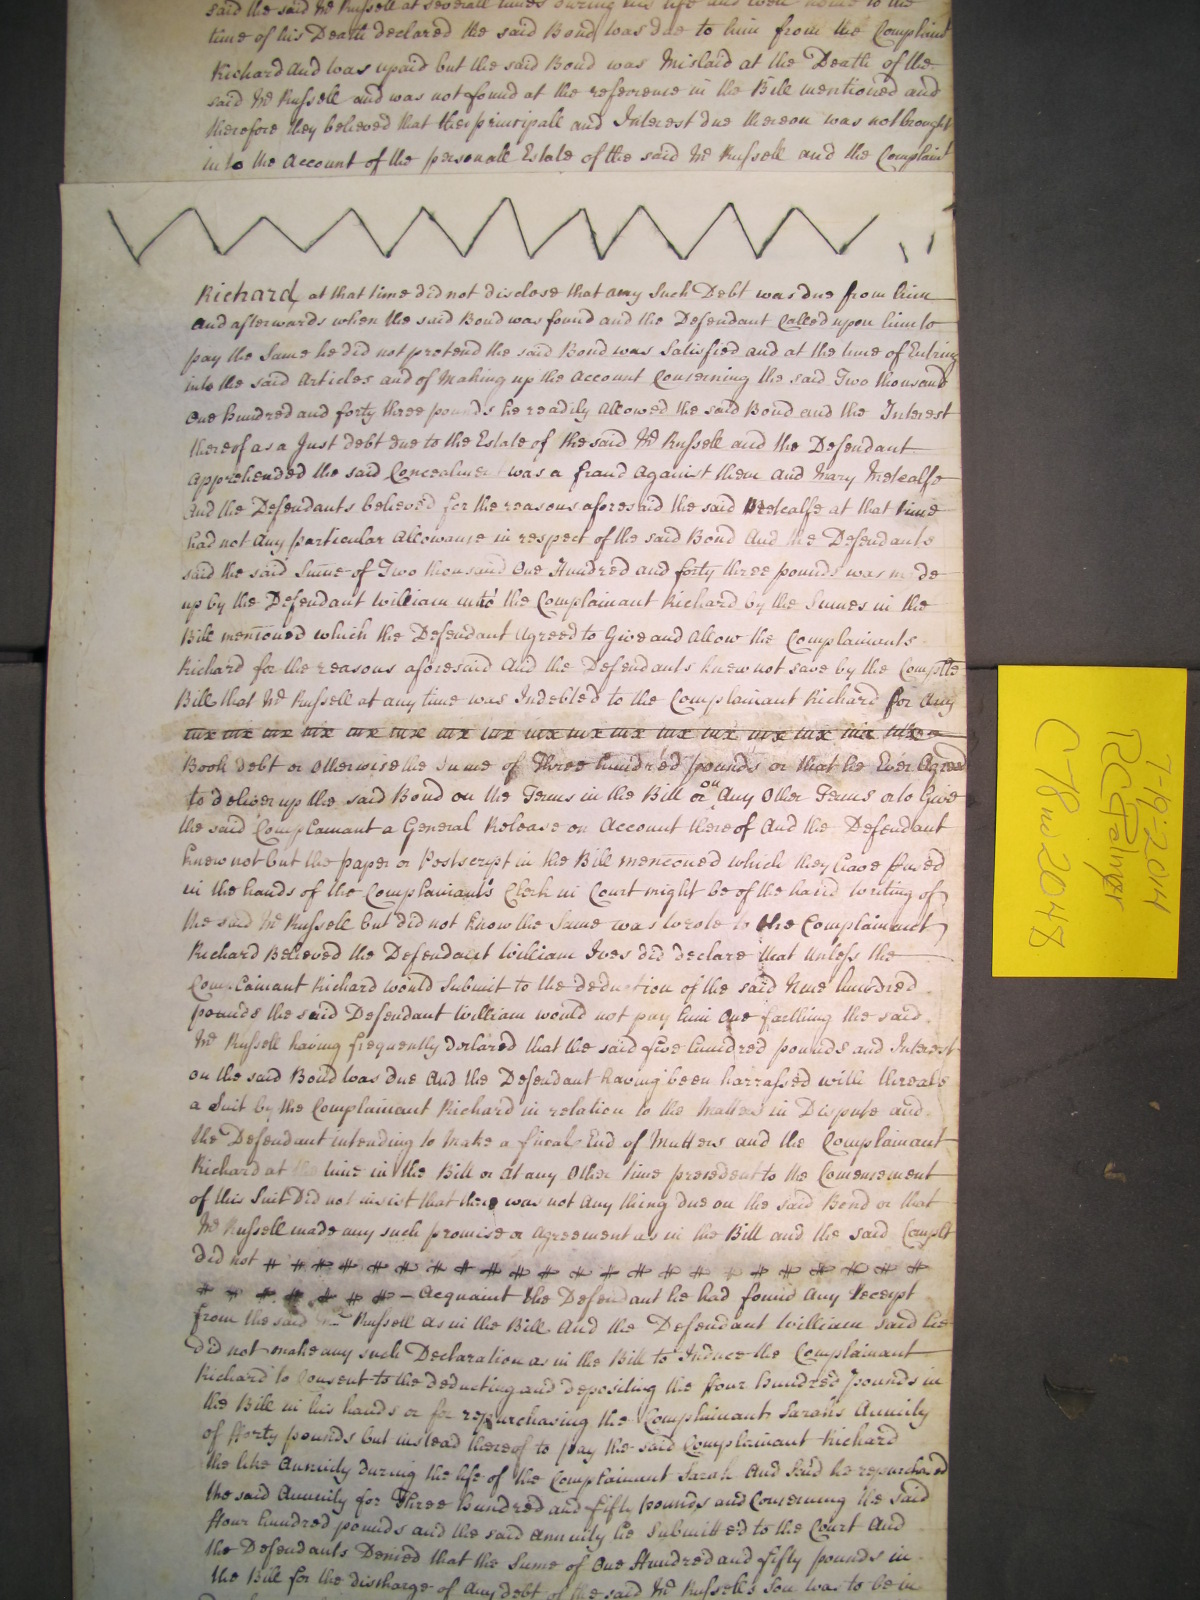 said the said Mr Russell at severall times during his life and
time of his Death declared the said Bond was due to him from the Complaint
Richard and was upaid but the said Bond was Mislaid at the Death of the
said Mr Russell and was not found at the reference in the Bill mentioned and
therefore they believed that the principall and Interest due thereon was not brought
into the Account of the personall Estate of the said Mr Russell and the Complaint
Richard at that time did not disclose that any Such Debt was due from him
and afterwards when the said Bond was found and the Defendant Called upon him to
pay the Same he did not pretend the said Bond was Satisfied and at the time of Entring
into the said Articles and of Making up the Account Concerning the said Two thousand
One hundred and forty three pounds he readily Allowed the said Bond and the Interest
thereof as a Just debt due to the Estate of the said Mr Russell and the Defendant
Apprehended the said Concealment was a fraud Against them and Mary Metcalfe
And the Defendants believed for the reasons aforesaid the said Metcalfe at that time
had not any particular Allowance in respect of the said Bond And the Defendants
said the said Sume of Two thousand One Hundred and forty three pounds was made
up by the Defendant William the Complainant Richard by the Sumes in the
Bill mentioned which the Defendant Agreed to Give and Allow the Complainants
Richard for the reasons aforesaid And the Defendants knew not save by the Complts
Bill that Mr Russell at any time was Indebted to the Complainant Richard for Any
Book debt or otherwise the Sume of Three hundred pounds or that he Ever Agreed
to deliver up the said Bond on the Terms in the Bill or on Any Other Terms or to Give
the said Complainant a General Release on Account thereof And the Defendant
knew not but the paper or Postscript in the Bill mencioned which they have
in the hands of the Complainant's Clerk in Court might be of the hand writing of
the said Mr Russell but did not know the Same was wrote to the Complainant
Richard Believed the Defendant William Ives did declare that unless the
Complainant Richard would Submit to the deduction of the said Nine hundred
pounds the said Defendant William would not pay him One farthing the said
Mr Russell having frequently declared that the said five hundred pounds and Interest
on the said Bond was due And the Defendant having been harrassed with threats
a Suit by the Complainant Richard in relation to the Matters in Dispute and
the Defendant intending to Make a final End of Matters and the Complainant
Richard at the time in the Bill or at any Other time precedent to the Comencement
of this Suit did not insist that there was not Any thing due on the said Bond or that
Mr Russell made any such promise or agreement as in the Bill and the said Complt
did not # # # # # # # # # # # # # # # # # # # # # # #
# # # # # # # – Acquaint the Defendant he had found any Receipt
from the said Mr Russell as in the Bill And the Defendant William said he
did not make any such Declaration as in the Bill to Induce the Complainant
Richard to Consent to the deducting and depositing the four hundred pounds in
the Bill in his hands or for repurchasing the Complainant Sarah's Annuity
of fforty pounds but instead thereof to pay the said Complainant Richard
the like Annuity During the life of the Complainant Sarah And Said he repurchased
the said Annuity for Three hundred and fifty pounds and Concerning the said
ffour hundred pounds and the said Annuity he Submitted to the Court And
the Defendants Denied that the Sume of One Hundred and fifty pounds in
the Bill for the discharge of Any debt of the said Mr Russell's Son was to be in
7-19-2014
RC Palmer
C78no2048